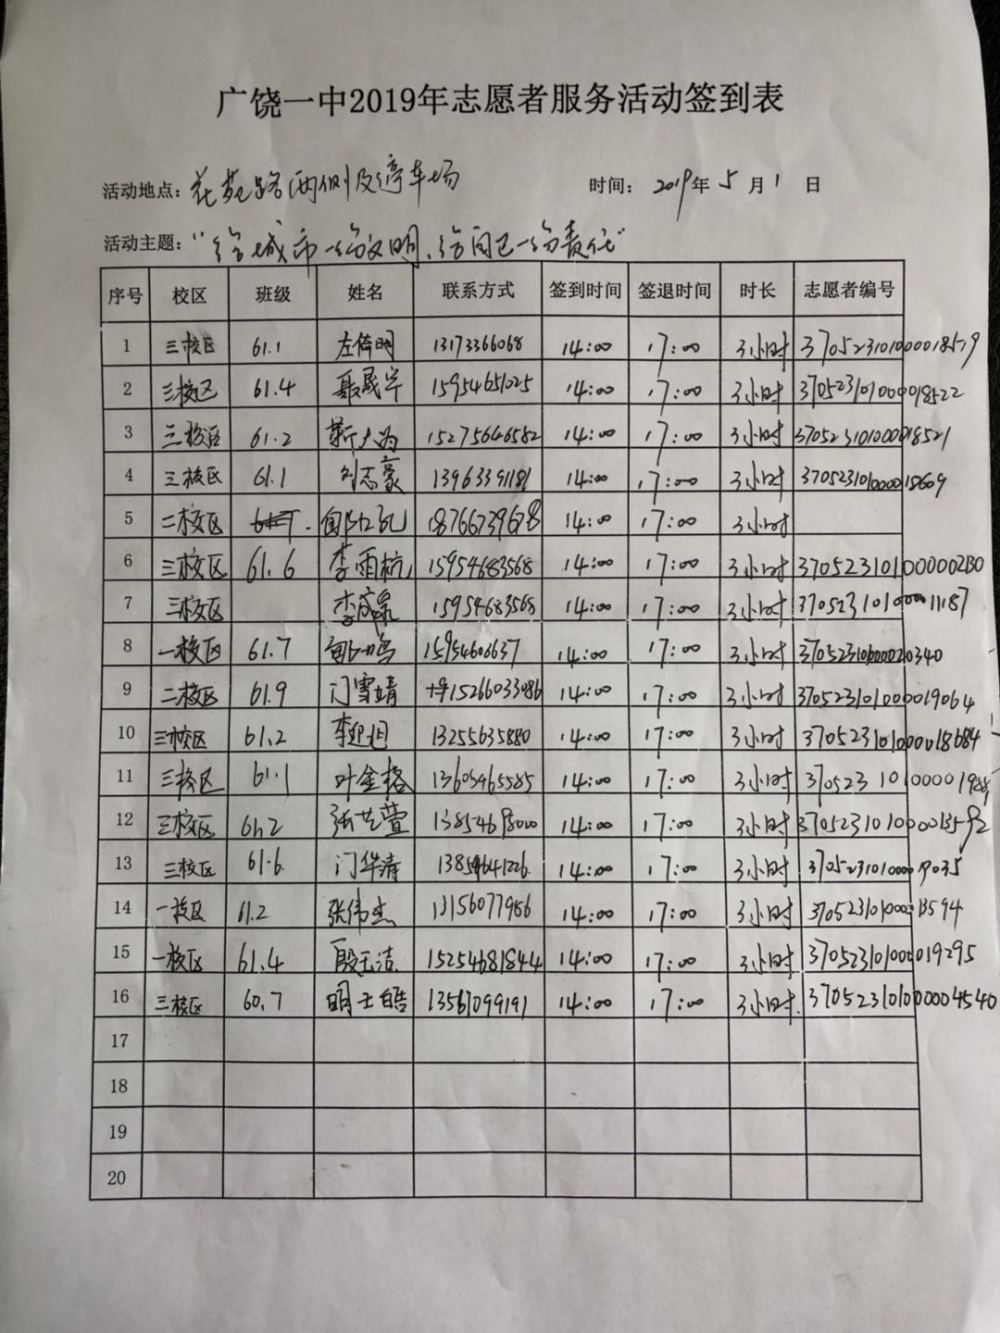 广饶一中2019年志愿者服务活动签到表
活动地点：花苑路两侧及停车场 时间：2019年5月1日
活动主题："给城市一份文明、给自己一份责任"
序号 校区 班级 姓名 联系方式 签到时间 签退时间 时长 志愿者编号
1 三校区 61.1 左倚明 13173366068 14:00 17:00 3小时
2 三校区 61.4 聂晟宇 15954651025 14:00 17:00 3小时 370523101000018522
3 三校区 61.2 靳大为 15275646582 14:00 17:00 3小时 370523101000018521
4 三校区 61.1 刘志豪 13963391181 14:00 17:00 3小时 370523101000018609
5 二校区 18766739678 14:00 17:00 3小时
6 三校区 61.6 李雨杭 15954683568 14:00 17:00 3小时 370523101000002130
7 三校区 李成泉 15954683568 14:00 17:00 3小时 370523101000011187
8 一校区 61.7 15954606637 14:00 17:00 3小时
9 二校区 61.9 门雪靖 15266033086 14:00 17:00 3小时 370523101000019064
10 三校区 61.2 李迎旭 13255635880 14:00 17:00 3小时 370523101000018684
11 三校区 61.1 叶金格 13605465585 14:00 17:00 3小时
12 三校区 张芝萱 14:00 17:00 3小时
13 三校区 61.6 门华涛 13854641226 14:00 17:00 3小时
14 一校区 11.2 张伟杰 13156077986 14:00 17:00 3小时 370523101000013594
15 一校区 61.4 殷玉洁 15254681844 14:00 17:00 3小时 370523101000019295
16 三校区 60.7 明士皓 13561099191 14:00 17:00 3小时. 370523101000004540
17
18
19
20